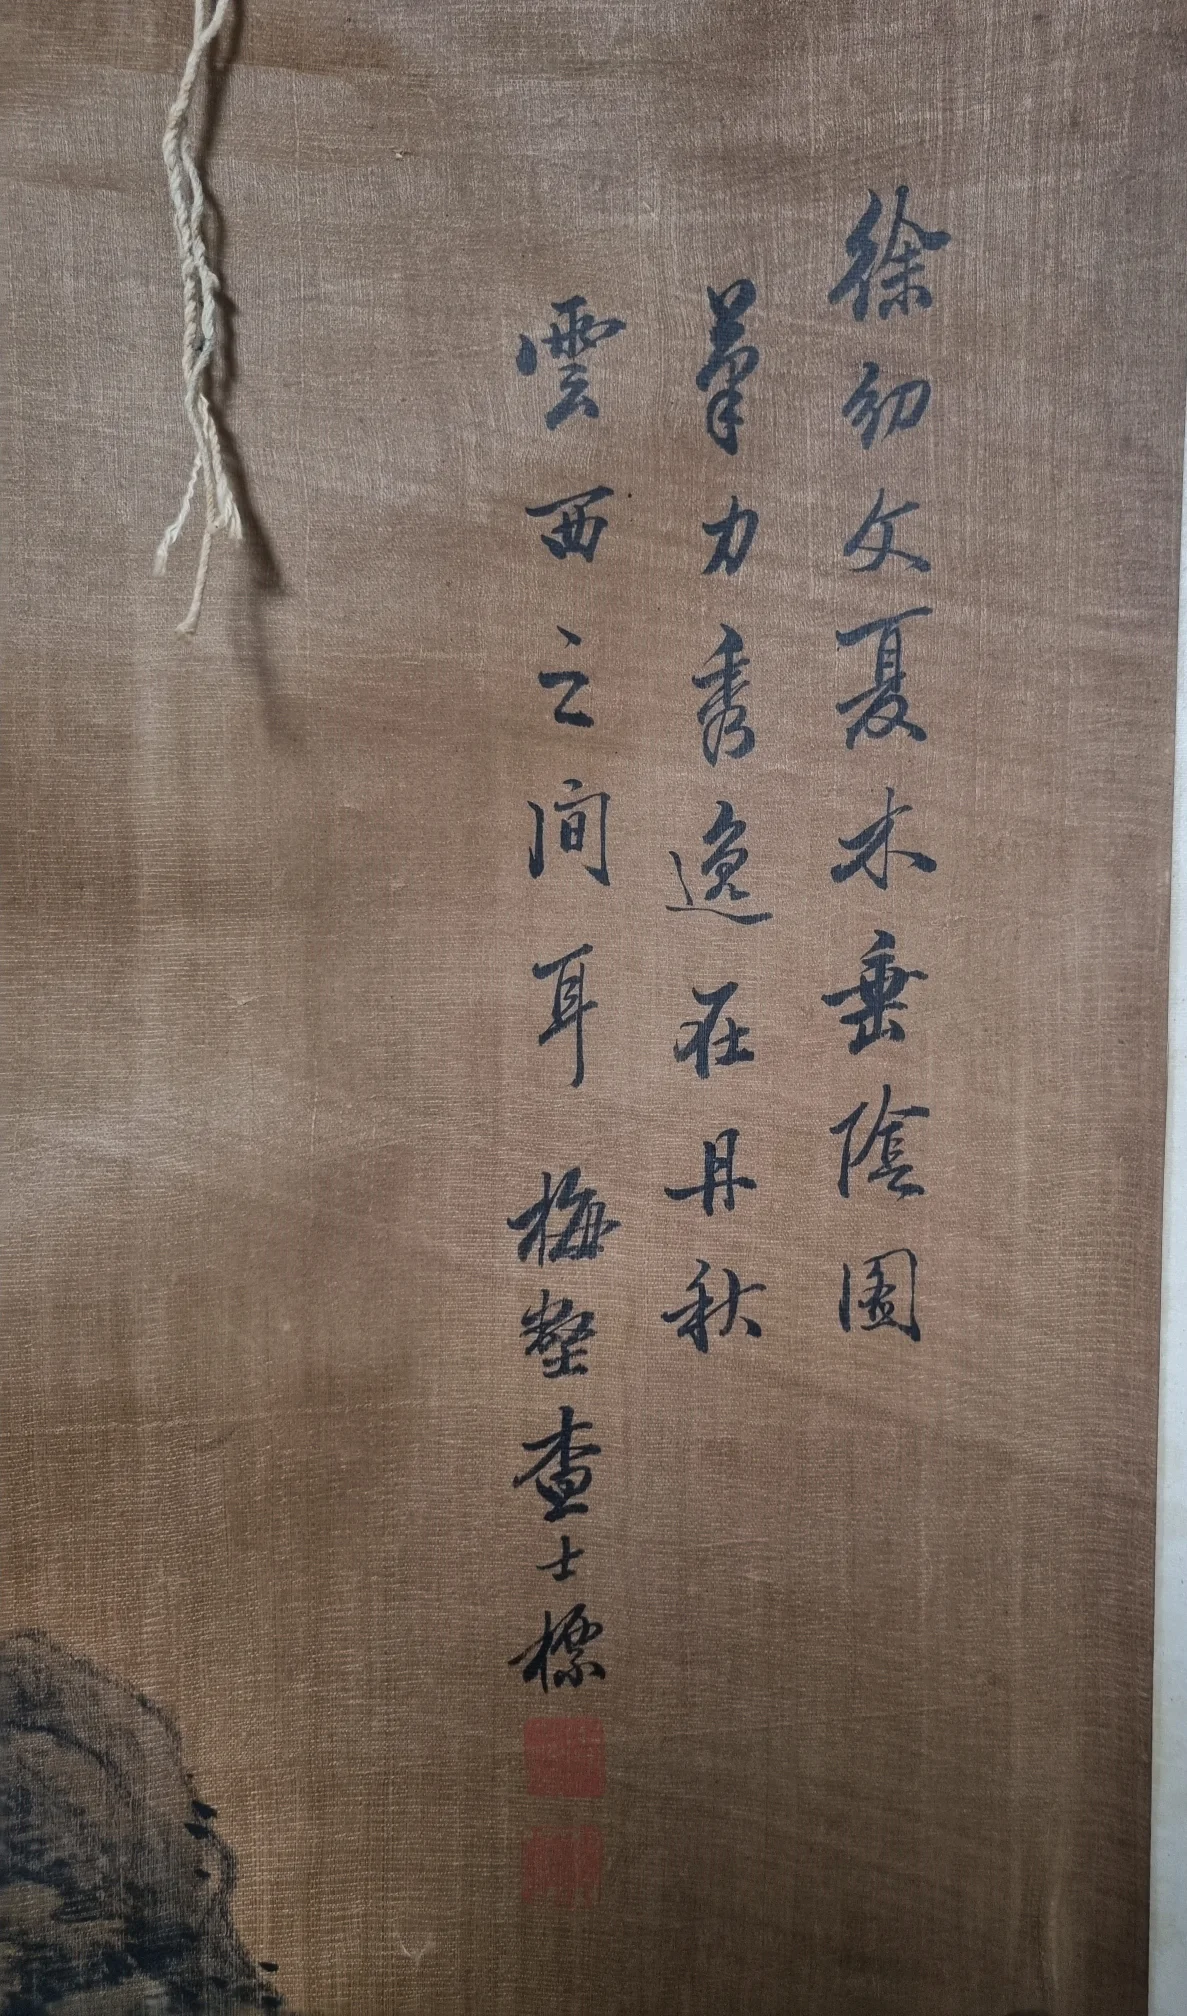 徐幼文夏木垂陰圖
筆力秀逸在丹秋
雲西之間耳 梅壑查士標